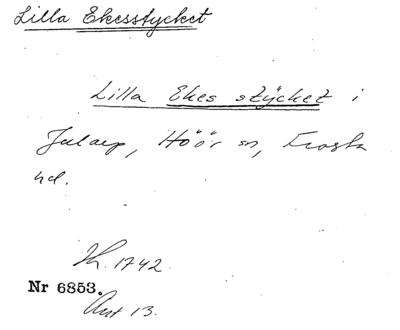 Lilla Ekesstycket
Lilla Ekes stÿcket i
Julaep, Höör sn, Frosta
hd.
Kt. 1742.
Nr 6853.
Akt 13.